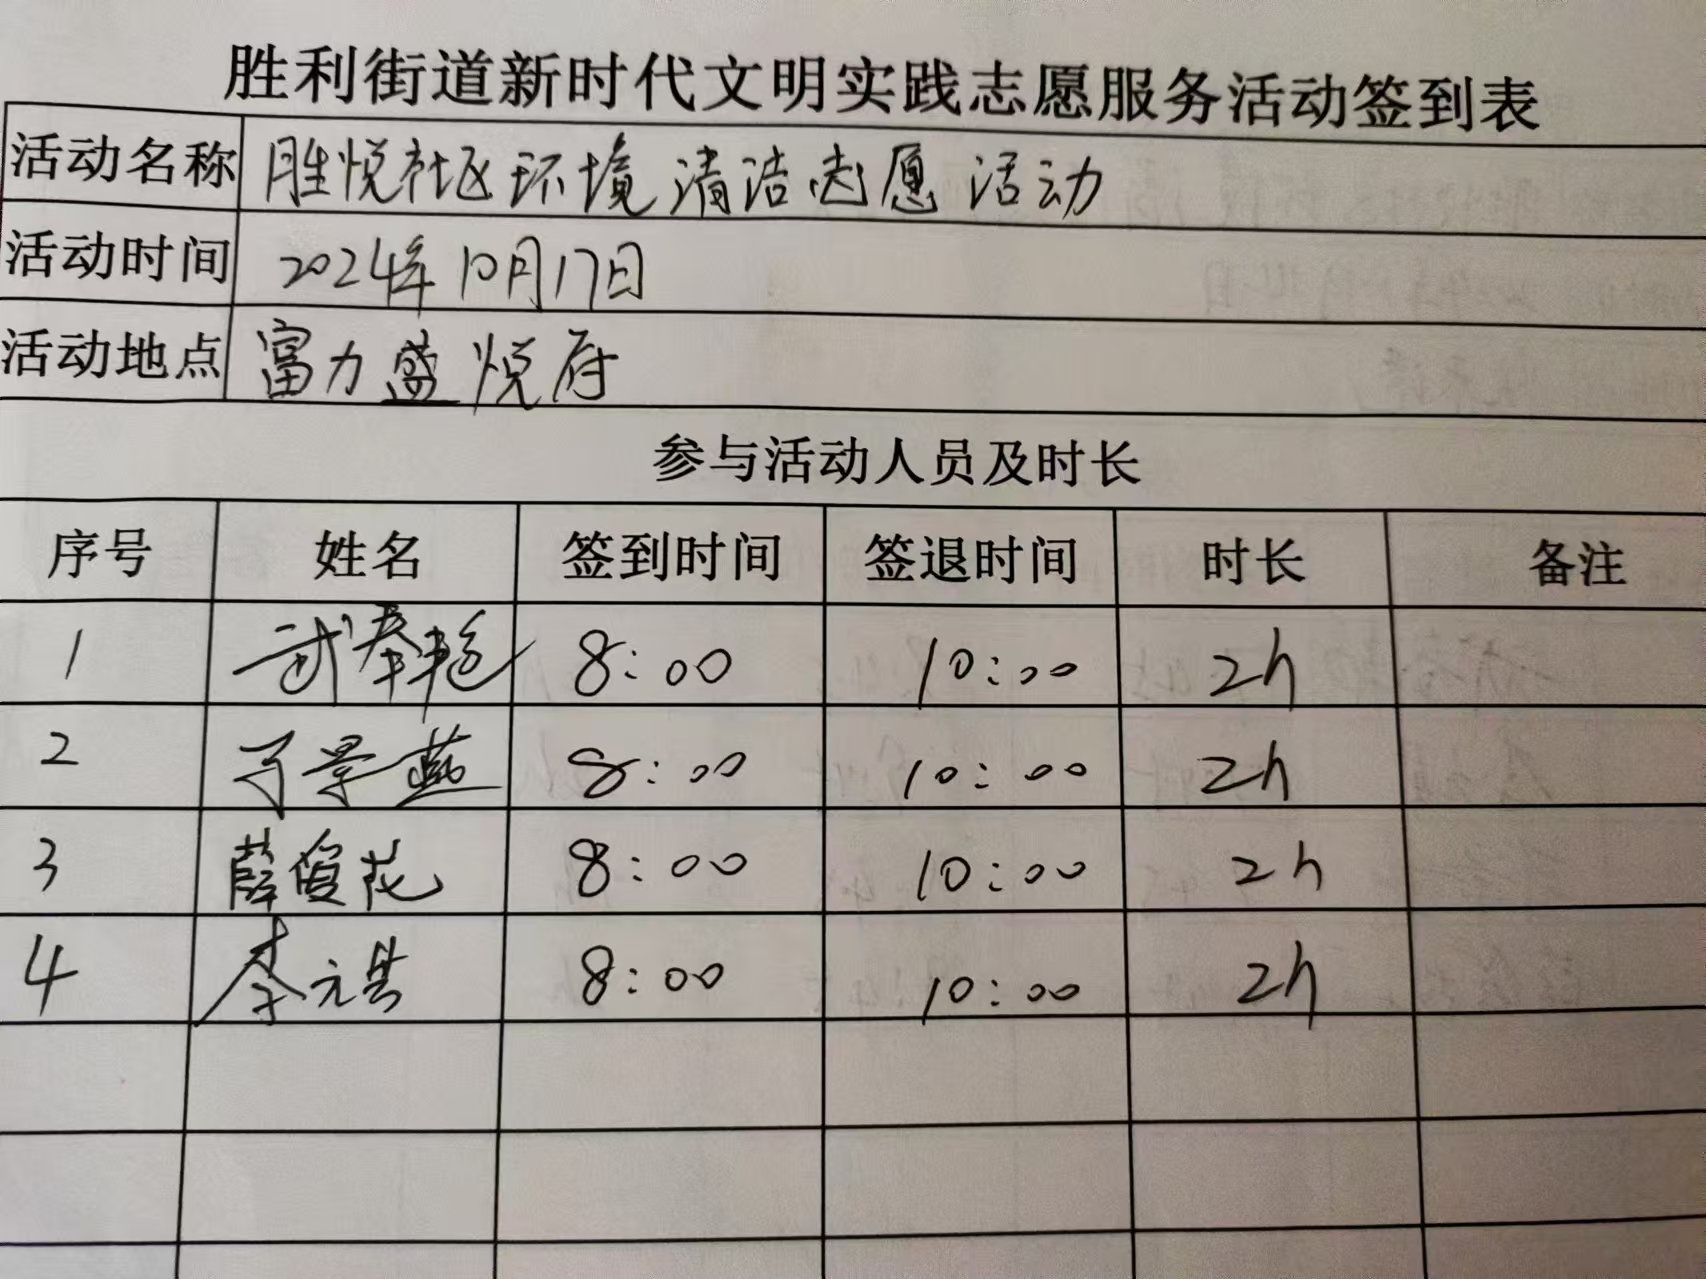 胜利街道新时代文明实践志愿服务活动签到表
活动名称 胜悦社区环境清洁志愿活动
活动时间 2024年10月17日
活动地点 富力盛悦府
参与活动人员及时长
序号 姓名 签到时间 签退时间 时长 备注
1 武春艳 8:00 10:00 2h
2 于景燕 8:00 10:00 2h
3 薛俊花 8:00 10:00 2h
4 李元 8:00 10:00 2h